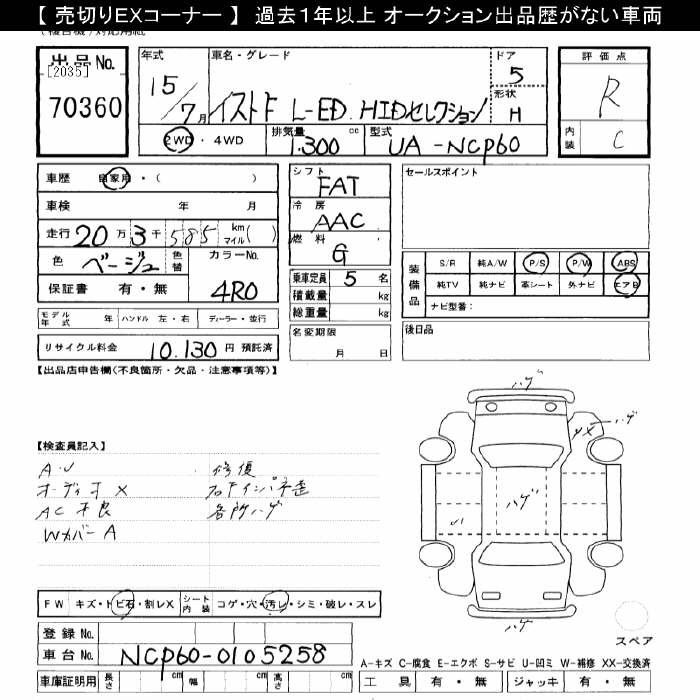 【 売切りEXコーナー 】 過去１年以上 オークション出品歴がない車両
出品No.
[2035]
70360
年式 車名・グレード ドア
15/7月 イスト F L-ED. HIDセレクション 5
形状
H
2WD ・ 4WD 排気量 1.300 cc 型式 UA-NCP60
評価点
R
内装 C
車歴 自家用 ・ ( )
車検 年 月
走行 20万 3千 585 km マイル ( )
色 ベージュ 色替 カラーNo.
4R0
保証書 有 ・ 無
モデル年式 年 ハンドル 左・右 ディーラー・並行
リサイクル料金 10.130 円 預託済
シフト
FAT
冷房
AAC
燃料
G
乗車定員 5 名
積載量 kg
総重量 kg
名変期限
月 日
セールスポイント
装備品 S/R 純A/W P/S P/W ABS
純TV 純ナビ 革シート 外ナビ エアB
ナビ型番：
後日品
【出品店申告欄(不良箇所・欠品・注意事項等)】
【検査員記入】
A.U 修復
オーディオ X
AC不良 各所ハゲ
Wカバー A
ハゲ
ハゲ
ハゲ
ハゲ
FW キズ・トビ石・割レX シート内装 コゲ・穴・汚レ・シミ・破レ・スレ
登録 No.
車台 No. NCP60-0105258
車庫証明用 長さ cm 幅 cm 高さ cm
スペア
A-キズ C-腐食 E-エクボ S-サビ U-凹ミ W-補修 XX-交換済
工具 有 ・ 無 ジャッキ 有 ・ 無